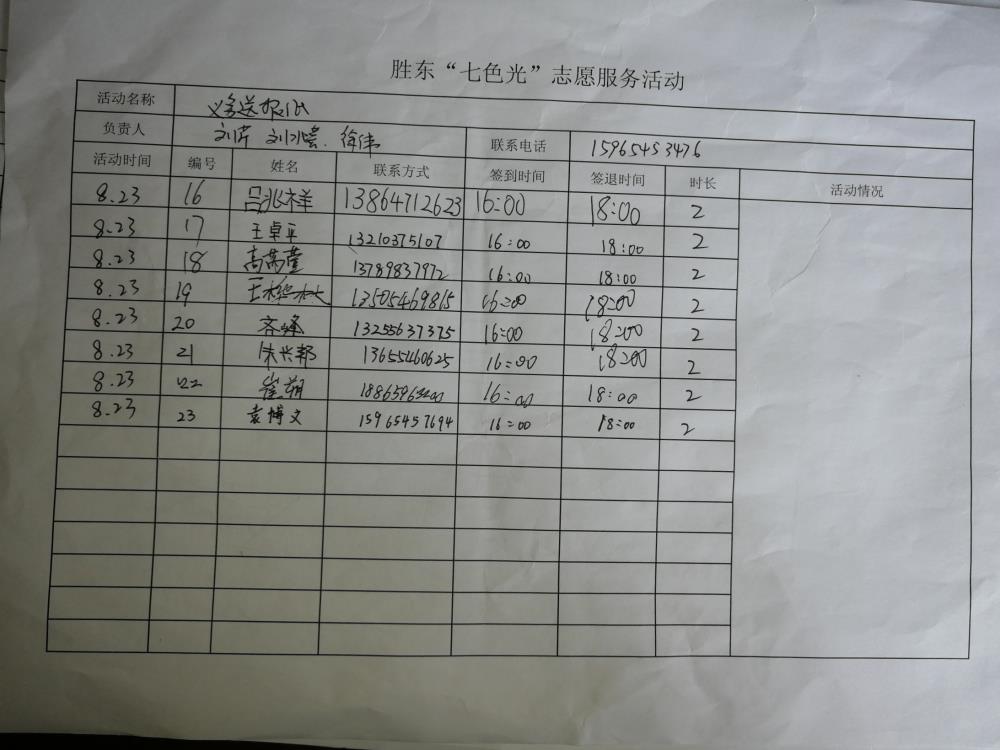 胜东“七色光”志愿服务活动
活动名称 义务送报纸
负责人 刘芹 刘冰 徐伟 联系电话 15965453476
活动时间 编号 姓名 联系方式 签到时间 签退时间 时长 活动情况
8.23 16 吕兆祥 13864712623 16:00 18:00 2
8.23 17 王卓平 13210375107 16:00 18:00 2
8.23 18 高 13789837972 16:00 18:00 2
8.23 19 王 13505469815 16:00 18:00 2
8.23 20 齐峰 13255637375 16:00 18:00 2
8.23 21 朱兴邦 13655460625 16:00 18:00 2
8.23 22 崔朔 16:00 18:00 2
8.23 23 袁博文 15965457694 16:00 18:00 2